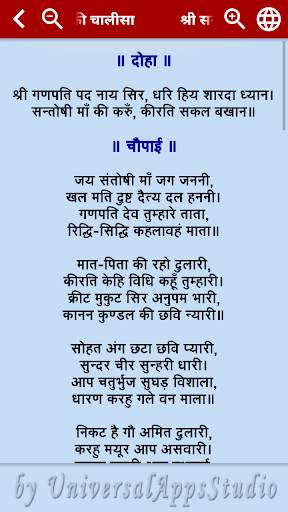 की चालीसा श्री सन
॥ दोहा ॥
श्री गणपति पद नाय सिर, धरि हिय शारदा ध्यान।
सन्तोषी माँ की करुँ, कीरति सकल बखान॥
॥ चौपाई ॥
जय संतोषी माँ जग जननी,
खल मति दुष्ट दैत्य दल हननी।
गणपति देव तुम्हारे ताता,
रिद्धि-सिद्धि कहलावहं माता॥
मात-पिता की रहो दुलारी,
कीरति केहि विधि कहूँ तुम्हारी।
क्रीट मुकुट सिर अनुपम भारी,
कानन कुण्डल की छवि न्यारी॥
सोहत अंग छटा छवि प्यारी,
सुन्दर चीर सुन्हरी धारी।
आप चतुर्भुज सुघड़ विशाला,
धारण करहु गले वन माला॥
निकट है गौ अमित दुलारी,
करहु मयूर आप असवारी।
by UniversalAppsStudio